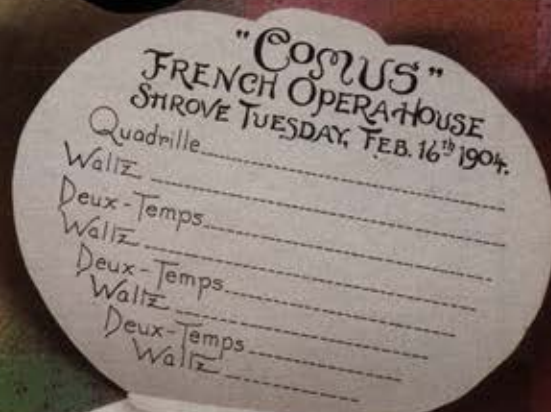 "COMUS"
FRENCH OPERA HOUSE
SHROVE TUESDAY, FEB. 16th 1904.
Quadrille
Waltz
Deux-Temps
Waltz
Deux-Temps
Waltz
Deux-Temps
Waltz